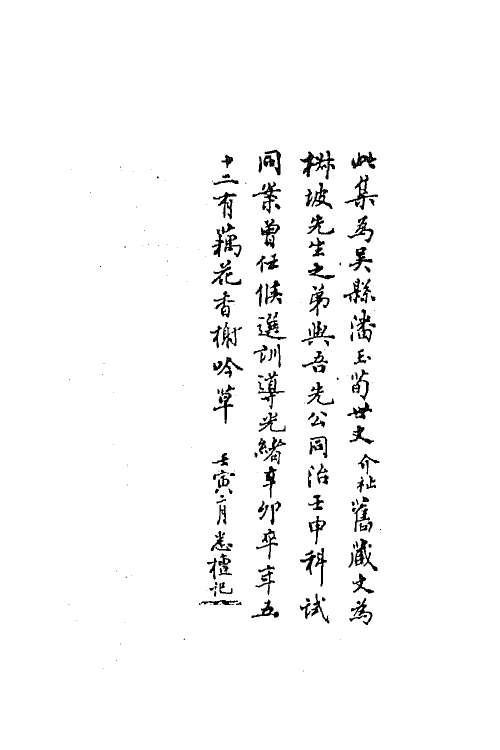 此集為吳縣潘玉荀世丈介祉舊藏丈為
椒坡先生之弟與吾先公同治壬申科試
同案曾任候選訓導光緒辛卯卒年五
十二有藕花香榭吟草 壬寅二月 櫨記